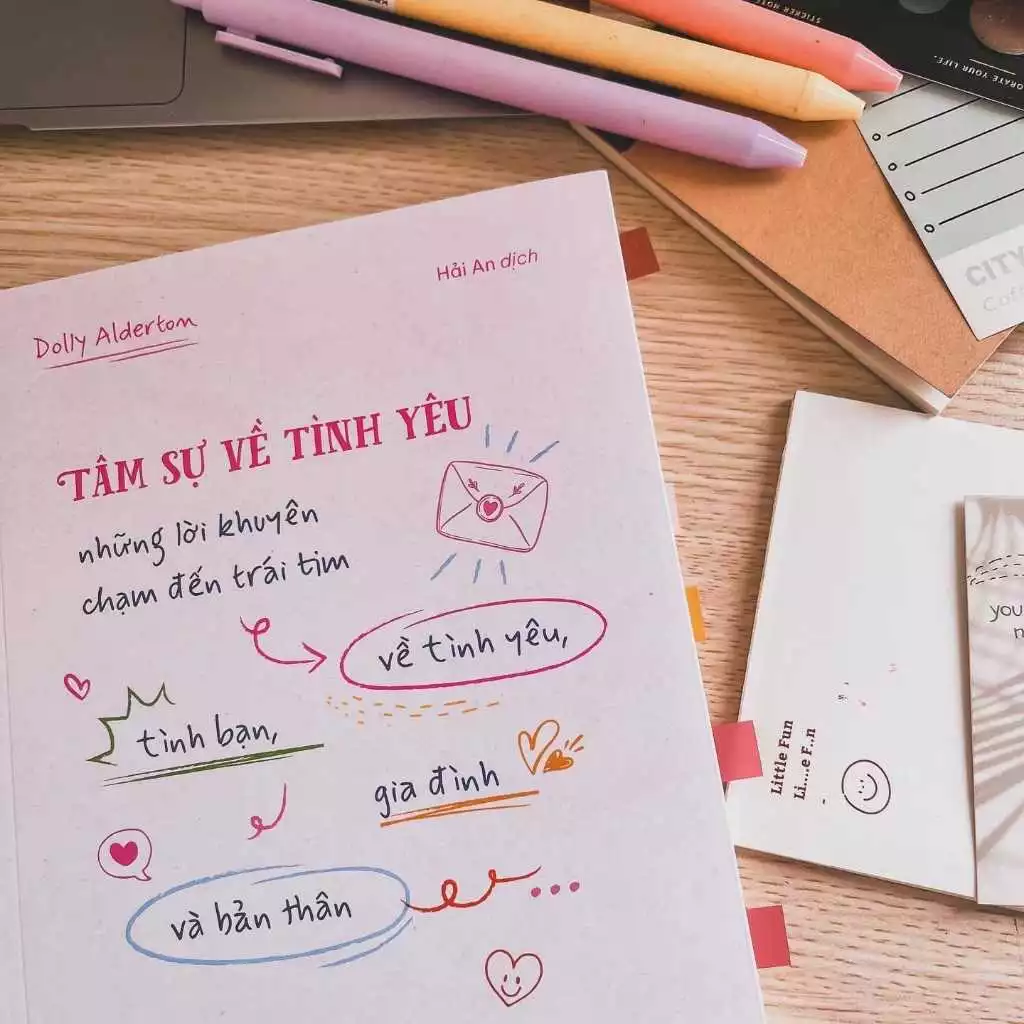 STICKER NOTE
ORATE YOUR LIFE.
CITY
Hải An dịch
Dolly Alderton
TÂM SỰ VỀ TÌNH YÊU
những lời khuyên
chạm đến trái tim
về tình yêu,
tình bạn,
gia đình
và bản thân
you
Little Fun
Li....e F..n